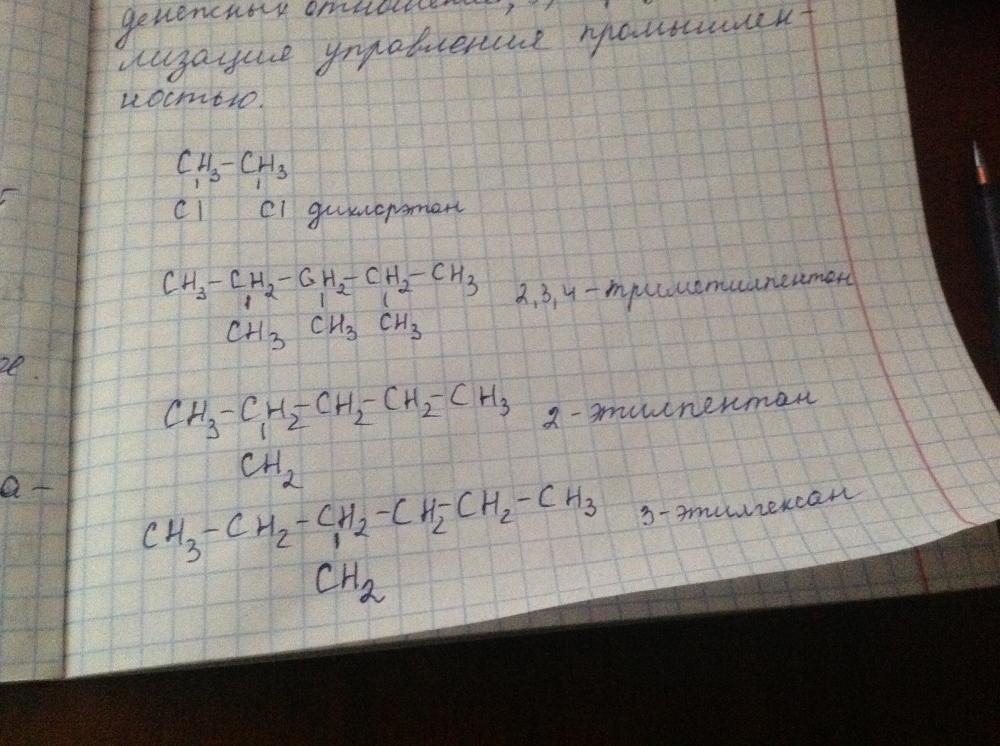 денежных отношений,
лизация управления промышлен-
ностью.
CH₃-CH₃
Cl Cl дихлорэтан
CH₃-CH₂-CH₂-CH₂-CH₃ 2,3,4-триметилпентан
CH₃ CH₃ CH₃
CH₃-CH₂-CH₂-CH₂-CH₃ 2-этилпентан
CH₂
а-
CH₃-CH₂-CH₂-CH₂-CH₂-CH₃ 3-этилгексан
CH₂